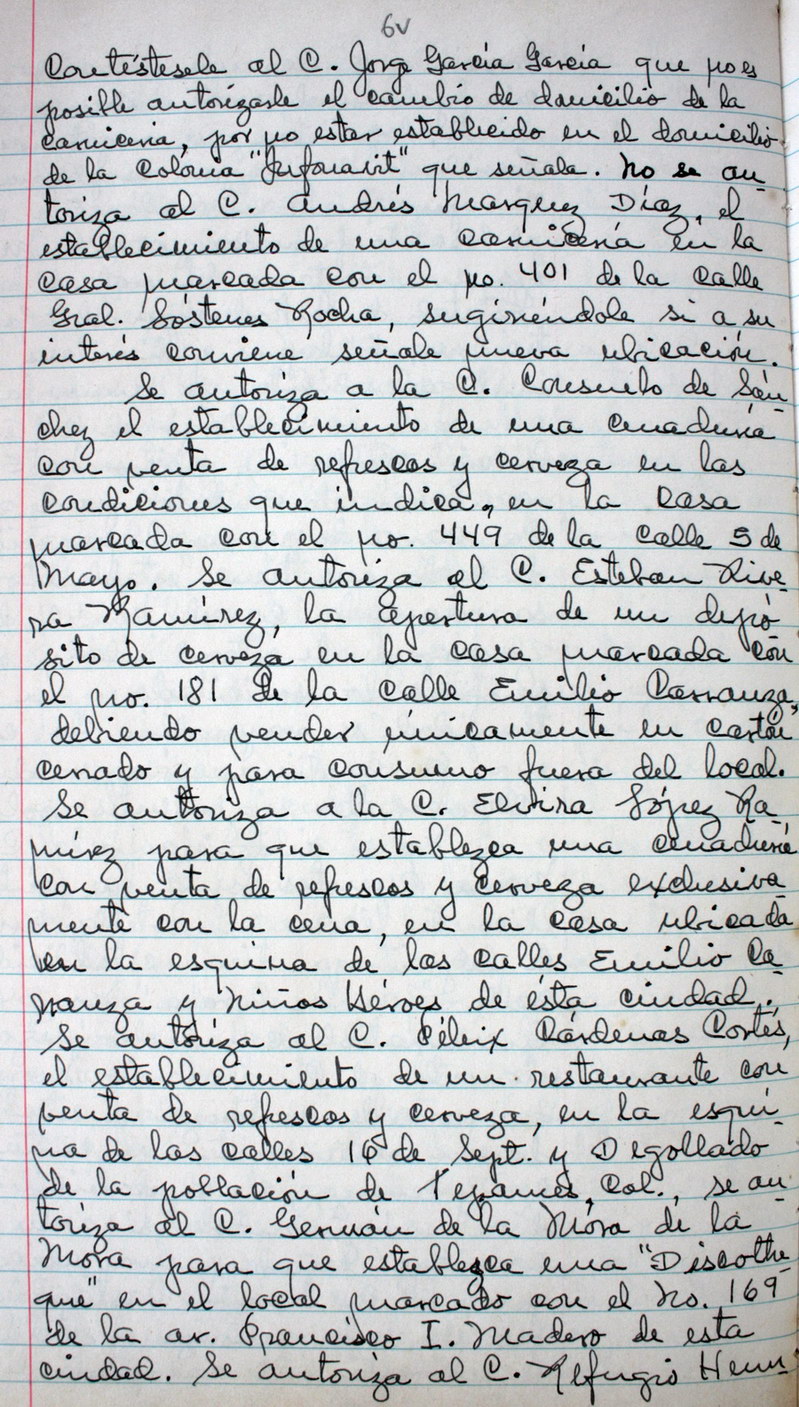 6v
Contéstesele al C. Jorge García García que no es
posible autorizarle el cambio de domicilio de la
carnicería, por no estar establecido en el domicilio
de la Colonia "Infonavit" que señala. No se au-
toriza al C. Andrés Marquez Díaz, el
establecimiento de una carnicería en la
casa marcada con el no. 401 de la calle
Gral. Sóstenes Rocha, sugiriéndole si a su
interés conviene señale nueva ubicación.
Se autoriza a la C. Consuelo de Sán-
chez el establecimiento de una cenaduría
con venta de refrescos y cerveza en las
condiciones que indica, en la casa
marcada con el no. 449 de la calle 5 de
Mayo. Se autoriza al C. Esteban Rive-
ra Ramírez, la apertura de un depó-
sito de cerveza en la casa marcada con
el no. 181 de la calle Emilio Carranza,
debiendo vender únicamente en cartón
cerrado y para consumo fuera del local.
Se autoriza a la C. Elvira López Ra-
mírez para que establezca una cenaduría
con venta de refrescos y cerveza exclusiva-
mente con la cena, en la casa ubicada
en la esquina de las calles Emilio Ca-
rranza y Niños Héroes de ésta ciudad.
Se autoriza al C. Félix Cárdenas Cortés,
el establecimiento de un restaurante con
venta de refrescos y cerveza, en la esqui-
na de las calles 16 de Sept. y Degollado
de la población de Tepames, Col., se au-
toriza al C. Germán de la Mora de la
Mora para que establezca una "Discothe-
que" en el local marcado con el No. 169
de la av. Francisco I. Madero de esta
ciudad. Se autoriza al C. Refugio Hern-